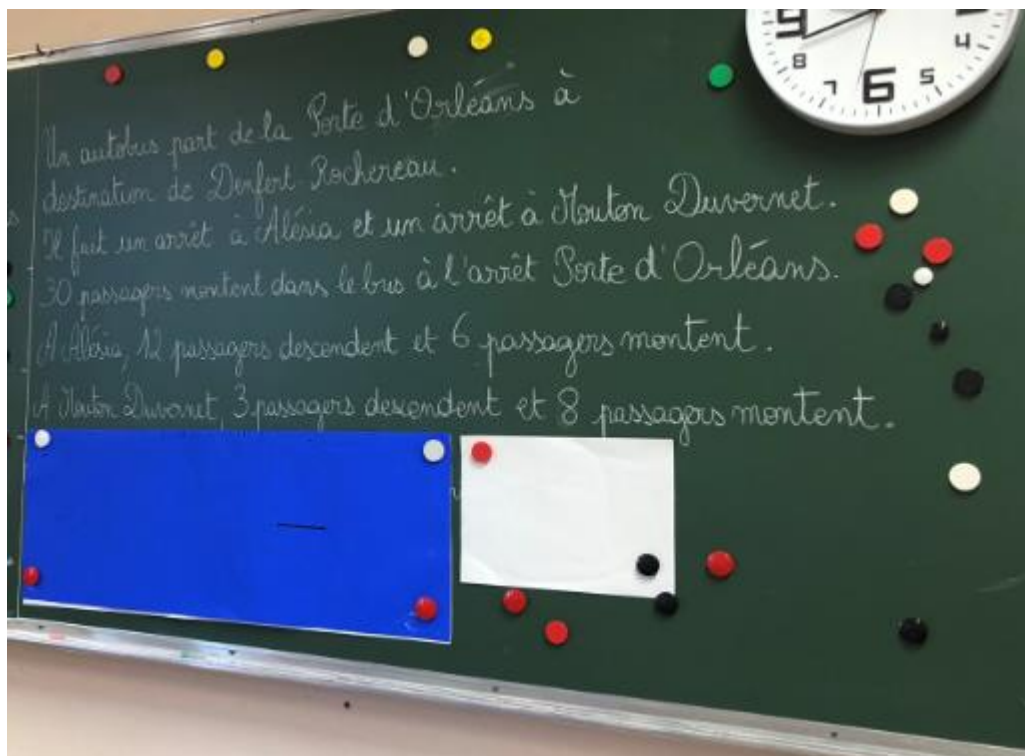 Un autobus part de la Porte d'Orléans à
destination de Denfert Rochereau.
Il fait un arrêt à Alésia et un arrêt à Mouton Duvernet.
30 passagers montent dans le bus à l'arrêt Porte d'Orléans.
A Alésia, 12 passagers descendent et 6 passagers montent.
A Mouton Duvernet, 3 passagers descendent et 8 passagers montent.
9
8
7
6
5
4